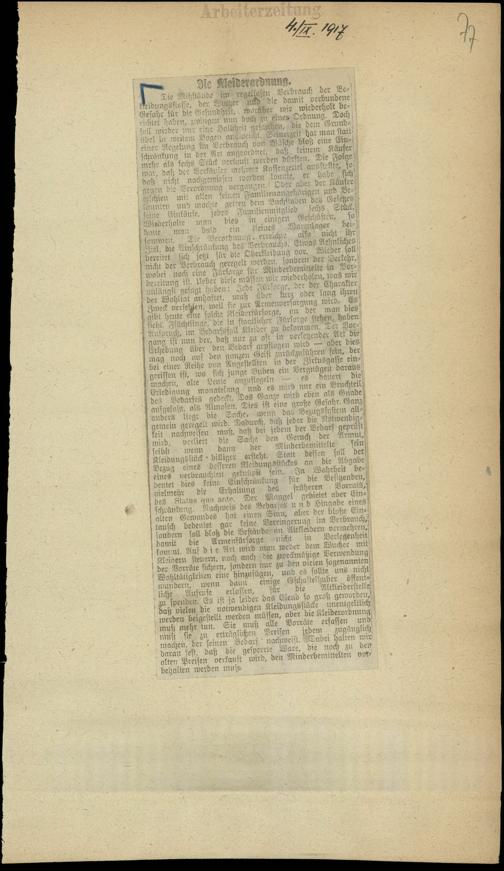 Arbeiterzeitung
4./IX. 1917
77
Die Kleiderordnung.
Die Mißstände im regellosen Verbrauch der Be-
kleidungsstoffe, der Wucher und die damit verbundene
Gefahr für die Gesundheit, worüber wir wiederholt be-
richtet haben, zwingen nun doch zu einer Ordnung. Doch
soll wieder nur eine Halbheit geschehen, die dem Grund-
übel in weitem Bogen ausweicht. Seinerzeit hat man statt
einer Regelung im Verbrauch von Wäsche bloß eine Ein-
schränkung in der Art angeordnet, daß keinem Käufer
mehr als sechs Stück verkauft werden dürften. Die Folge
war, daß der Verkäufer mehrere Kassenzettel ausstellte, so
daß nicht nachgewiesen werden konnte, er habe sich
gegen die Verordnung vergangen. Oder aber der Käufer
erschien mit allen seinen Familienangehörigen und Be-
kannten und machte getreu dem Buchstaben des Gesetzes
seine Einkäufe, jedes Familienmitglied sechs Stück.
Wiederholte man dies in einigen Geschäften, so
konnte man bald ein kleines Warenlager bei-
sammen. Die Verordnung erreichte also nicht ihr
Ziel, die Einschränkung des Verbrauchs. Etwas Aehnliches
bereitet sich jetzt für die Oberkleidung vor. Wieder soll
nicht der Verbrauch geregelt werden, sondern der Verkehr,
wobei noch eine Fürsorge für Minderbemittelte in Vor-
bereitung ist. Ueber diese müssen wir wiederholen, was wir
unlängst gesagt haben: Jede Fürsorge, der der Charakter
der Wohltat anhaftet, muß über kurz oder lang ihren
Zweck verfehlen, weil sie zur Armenversorgung wird. Es
gibt heute eine solche Kleiderfürsorge, an der man dies
sieht. Flüchtlinge, die in staatlicher Fürsorge stehen, haben
Anspruch, im Bedarfsfall Kleider zu bekommen. Der Vor-
gang ist nun der, daß nur zu oft in verletzender Art die
Erhebung über den Bedarf gepflogen wird — aber dies
mag noch auf den ganzen Geist zurückzuführen sein, der
bei einer Reihe von Angestellten in der Zirkusgasse ein-
gerissen ist, wo sich junge Buben ein Vergnügen daraus
machen, alte Leute anzuflegeln — es dauert die
Erledigung monatelang und es wird nur ein Bruchteil
des Bedarfes gedeckt. Das Ganze wird eben als Gnade
aufgefaßt, als Almosen. Dies ist eine große Gefahr. Ganz
anders liegt die Sache, wenn das Bezugssystem all-
gemein geregelt wird. Dadurch, daß jeder die Notwendig-
keit nachweisen muß, daß bei jedem der Bedarf geprüft
wird, verliert die Sache den Geruch der Armut,
selbst wenn dann der Minderbemittelte sein
Kleidungsstück billiger ersteht. Statt dessen soll der
Bezug eines besseren Kleidungsstückes an die Abgabe
eines verbrauchten geknüpft sein. In Wahrheit be-
deutet dies keine Einschränkung für die Besitzenden,
vielmehr die Erhaltung des früheren Vorrats,
des Status quo ante. Der Mangel gebietet aber Ein-
schränkung. Nachweis des Bedarfes und Hingabe eines
alten Gewandes hat einen Sinn, aber der bloße Ein-
tausch bedeutet gar keine Verringerung im Verbrauch,
sondern soll bloß die Bestände an Altkleidern vermehren,
damit die Armenfürsorge nicht in Verlegenheit
kommt. Auf die Art wird man weder dem Wucher mit
Kleidern steuern, noch auch die zweckmäßige Verwendung
der Vorräte sichern, sondern nur zu den vielen sogenannten
Wohltätigkeiten eine hinzufügen, und es sollte uns nicht
wundern, wenn dann einige Gschaftlhuber öffent-
liche Aufrufe erlassen, für die Altkleiderstelle
zu spenden. Es ist ja leider das Elend so groß geworden,
daß vielen die notwendigen Kleidungsstücke unentgeltlich
werden beigestellt werden müssen, aber die Kleiderordnung
muß mehr tun. Sie muß alle Vorräte erfassen und
muß sie zu erträglichen Preisen jedem zugänglich
machen, der seinen Bedarf nachweist. Wobei halten wir
daran fest, daß die gesperrte Ware, die noch zu den
alten Preisen verkauft wird, den Minderbemittelten vor-
behalten werden muß.